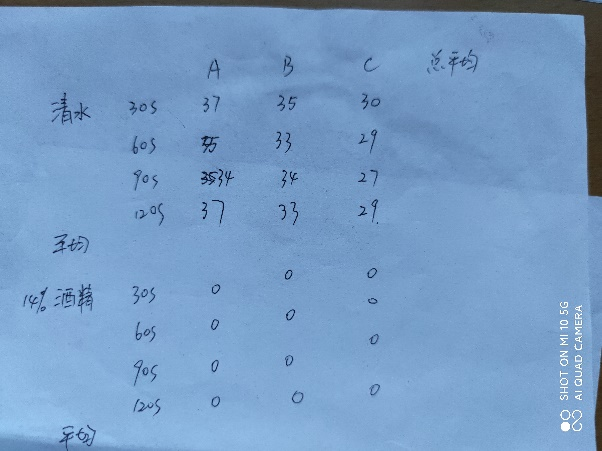 A B C 总平均
清水 30S 37 35 30
60S 35 33 29
90S 34 34 27
120S 37 33 29
平均
14% 酒精 30S 0 0 0
60S 0 0 0
90S 0 0 0
120S 0 0 0
平均
SHOT ON MI 10 5G
AI QUAD CAMERA